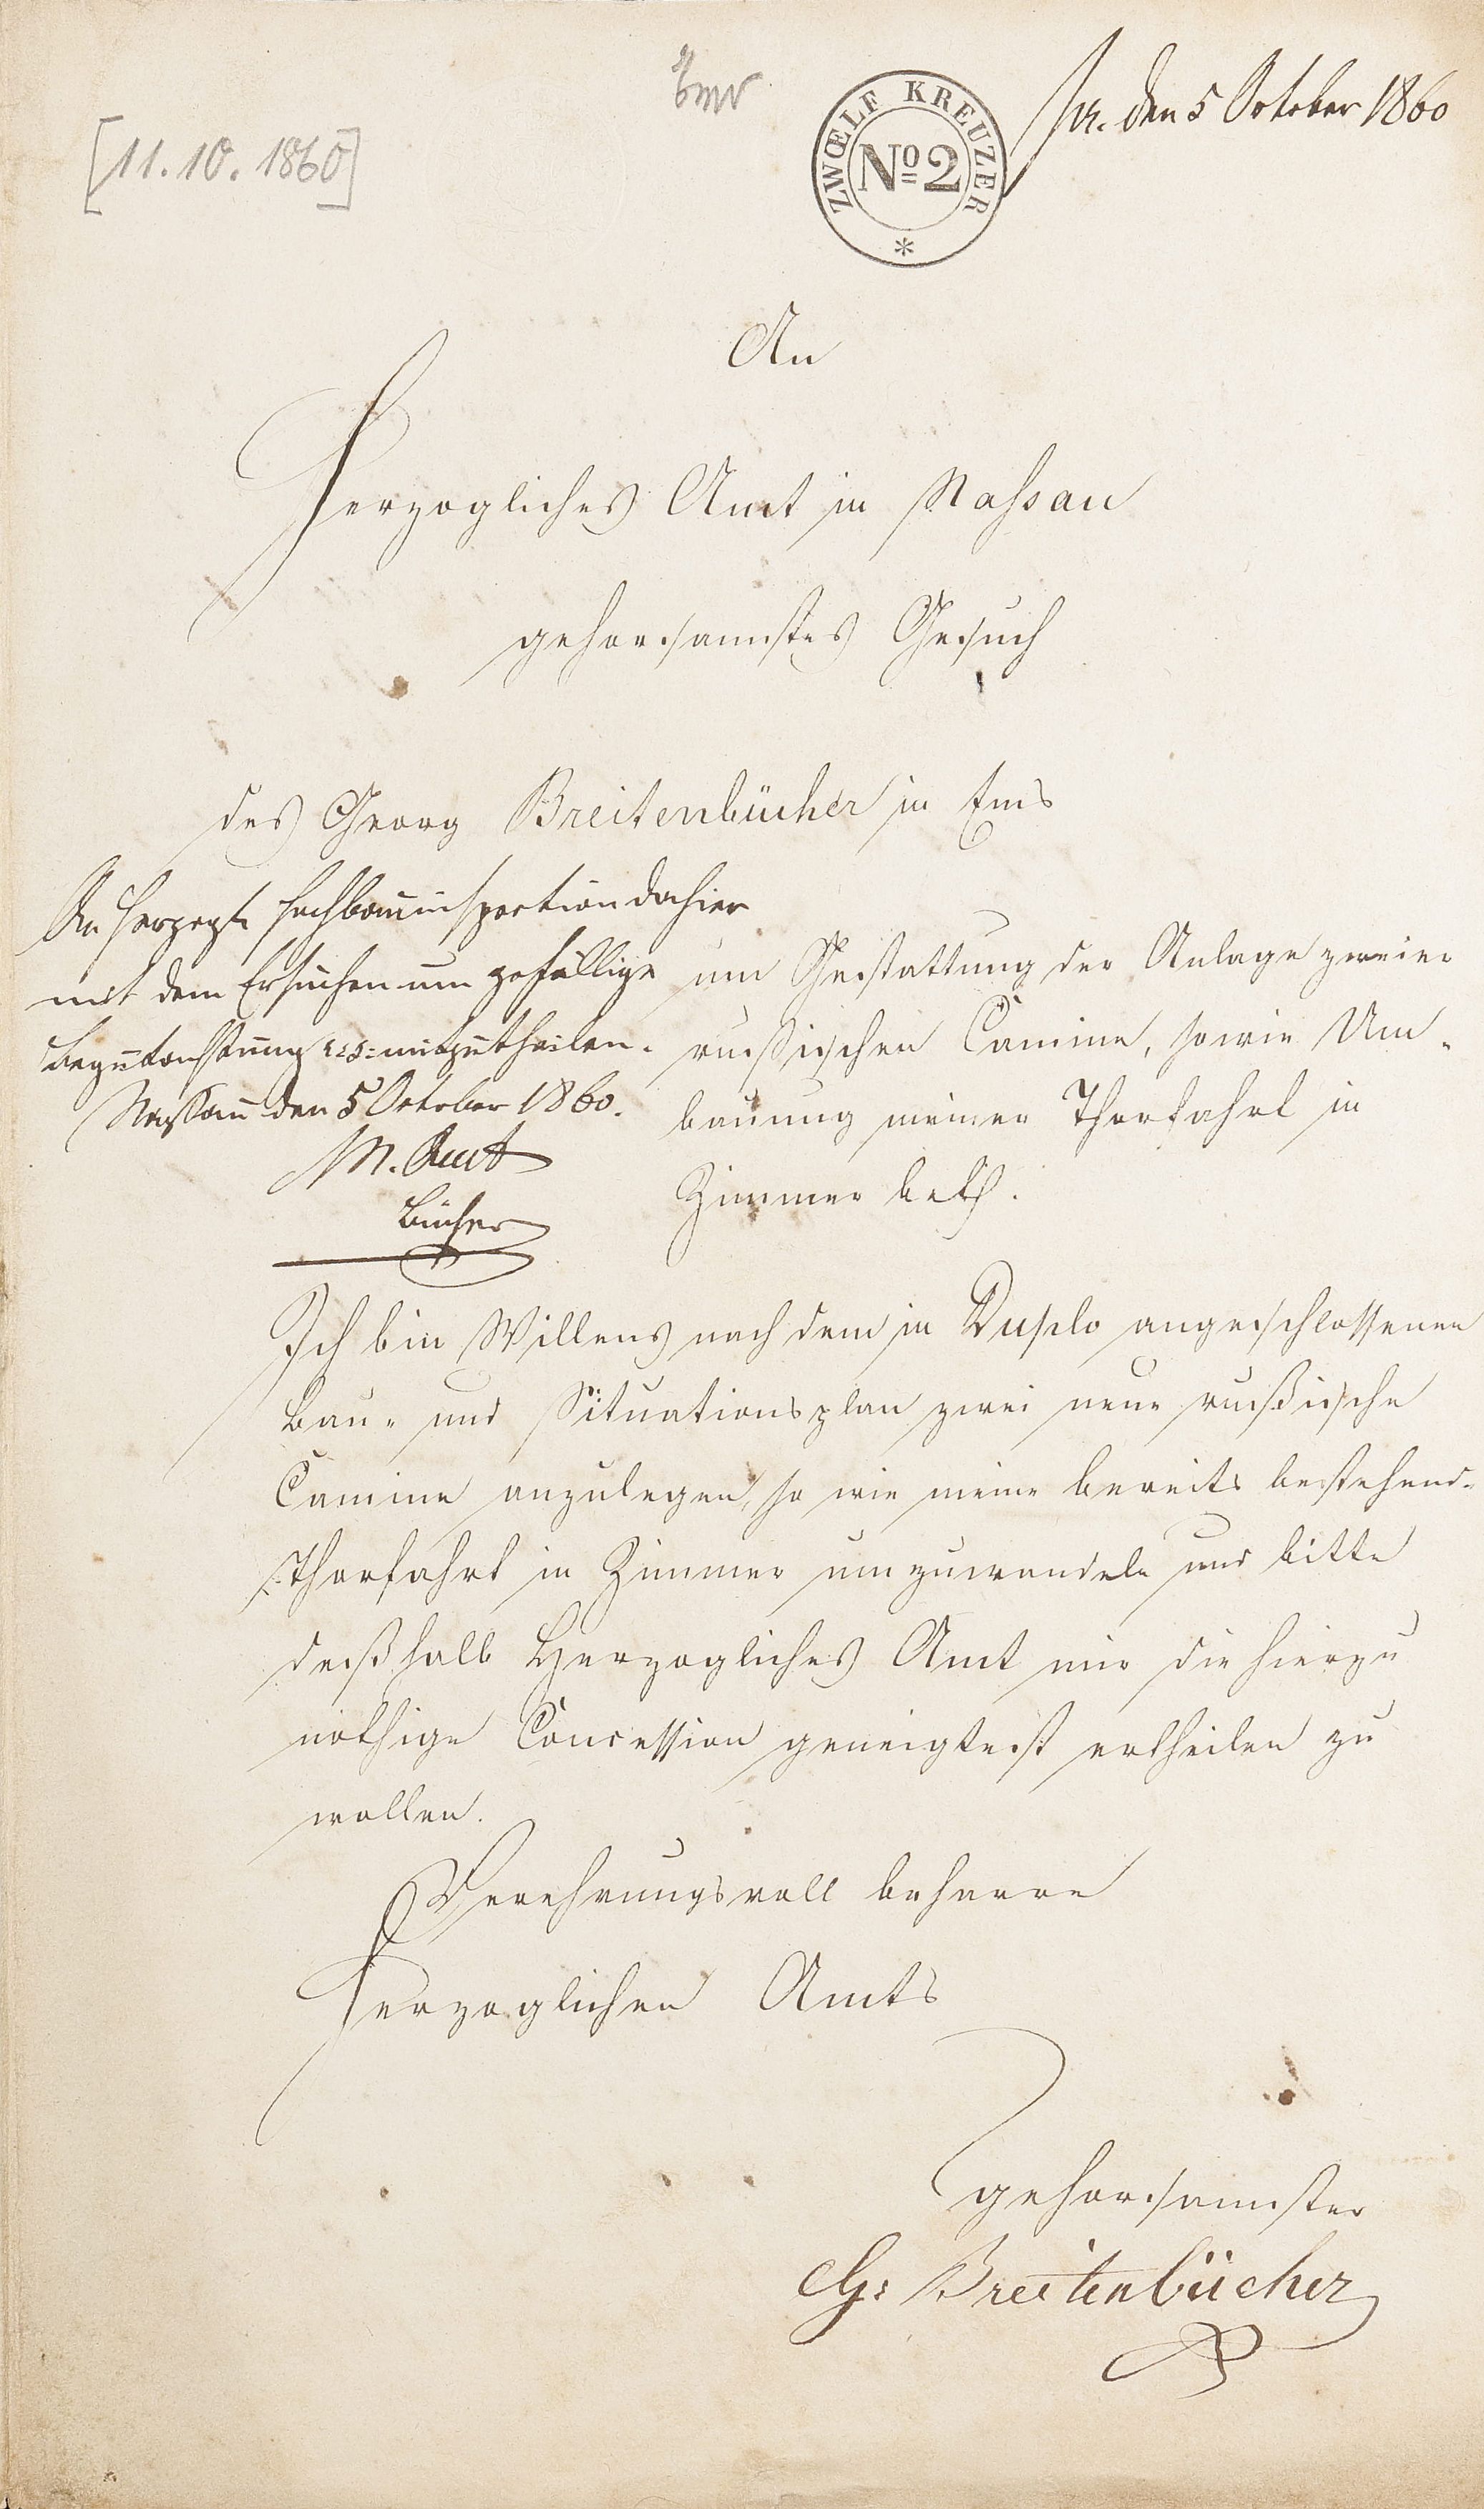 [11.10.1860]
ZWŒLF KREUZER
No 2
pr. den 5 October 1860
An
Herzogliches Amt in Nassau
gehorsamstes Gesuch
des Georg Breitenbücher in Ems
An Herzogl. Hochbauinspection dahier
mit dem Ersuchen um gefällige
Begutachtung mitzutheilen.
Nassau den 5 October 1860.
H. Amt
Bücher
um Gestattung der Anlage zweier
rußischen Camine, sowie Um-
bauung meiner Thorfahrt in
Zimmer betf.
Ich bin Willens nach dem in Duplo angeschlossenen
Bau- und Situationsplan zwei neue rußische
Camine anzulegen, so wie meine bereits bestehend-
Thorfahrt in Zimmer umzuwandeln und bitte
deßhalb Herzogliches Amt mir die hierzu
nöthige Concession geneigtest ertheilen zu
wollen.
Verehrungsvoll beharre
Herzoglichen Amts
gehorsamster
G: Breitenbücher